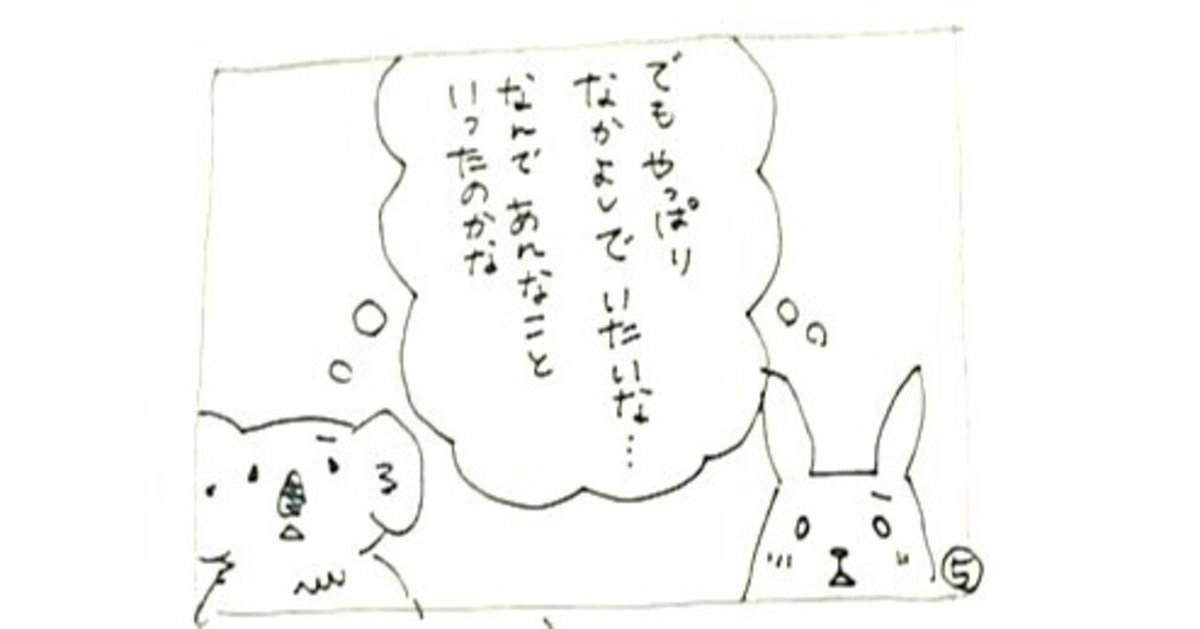 でも やっぱり
なかよしで いたいな…
なんで あんなこと
いったのかな
⑤